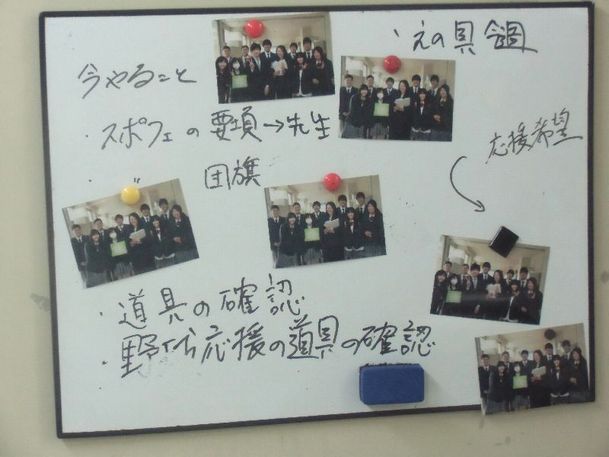 今やること
・スポフェの要項→先生
団旗
・道具の確認
・野代応援の道具の確認
えの具
応援希望